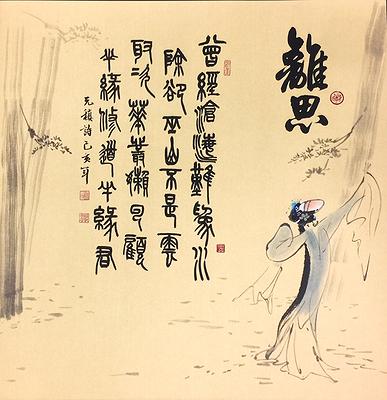 離思
曾經滄海難為水
除卻巫山不是雲
取次華叢懶回顧
半緣修道半緣君
元稹詩己亥年